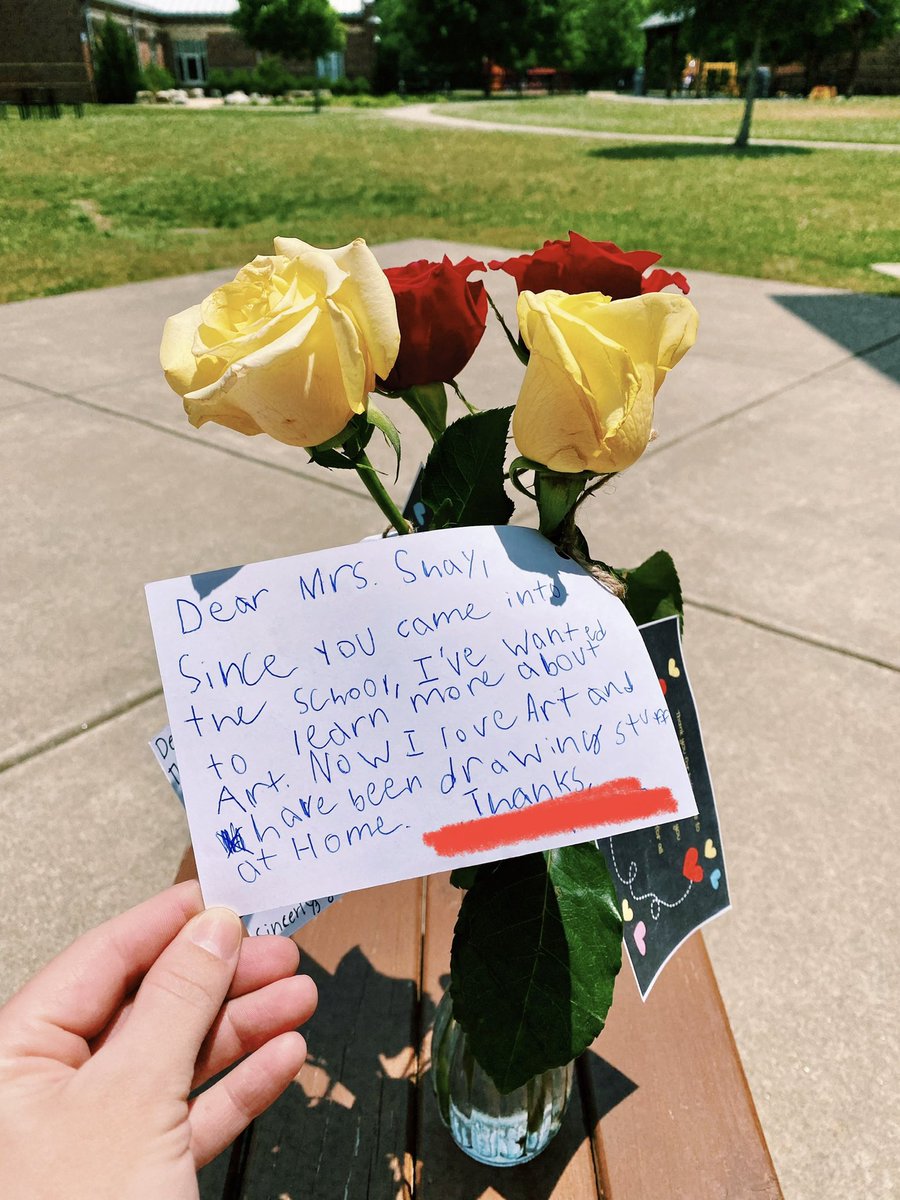 Dear Mrs. Snay,
Since you came into
the school, I've wanted
to learn more about
Art. Now I love Art and
have been drawing stuff
at Home. Thanks,
De
Sincerely,